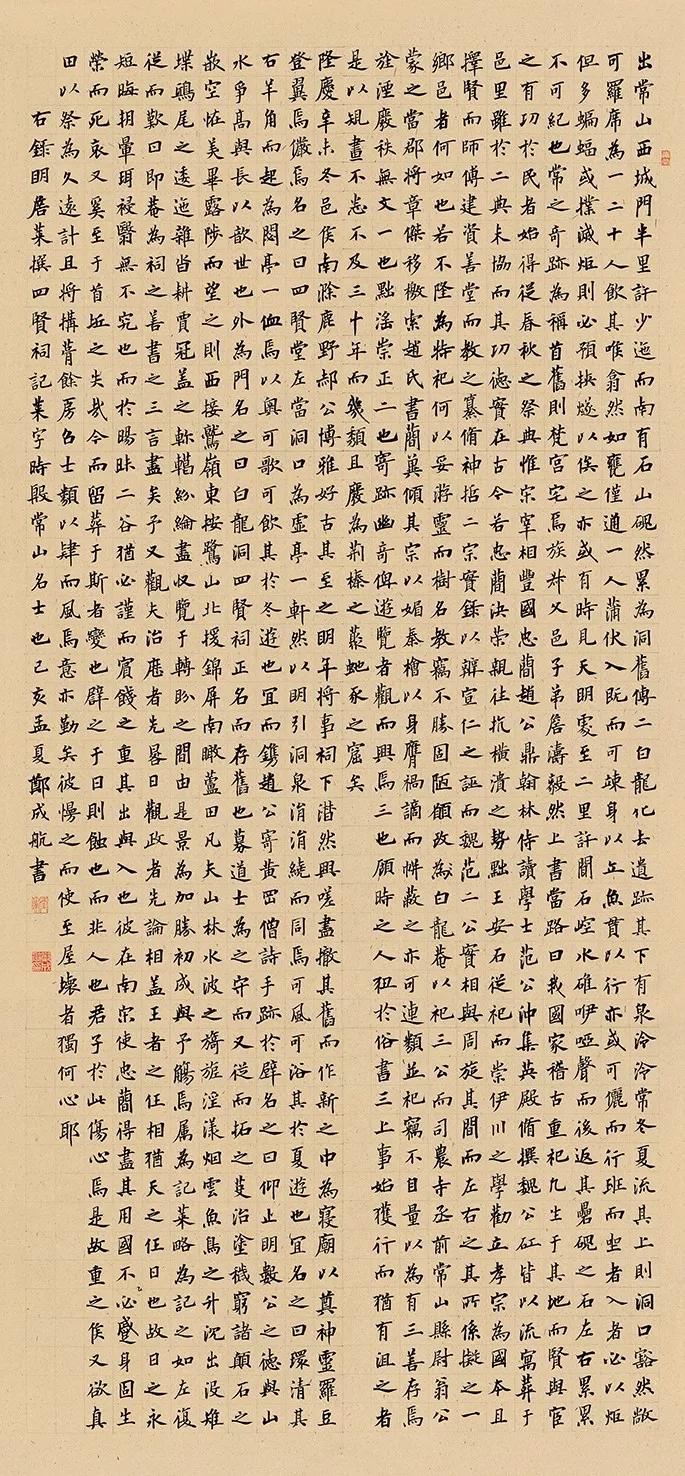 出常山西城門半里許少迤而南有石山磈然累為洞舊傳二白龍化去遺跡其下有泉泠泠常冬夏流其上則洞口豁然敞
可羅席為一二十人飲其喉翕然如甕僅通一人蒲伏入既而可竦身以立魚貫以行亦或可儷而行班而坐者入者必以炬
但多蝙蝠或撲滅炬則必預挾燧以俟之亦或有時見天明處至二里許間石崆水碓咿啞聲而後返其礨磈之石左右累累
不可紀也常之奇跡為稱首舊則梵宮宅焉族叔父邑子弟詹濤毅然上書當路曰我國家稽古重祀凡生于其地而賢與官
之有功於民者始得從春秋之祭典惟宋宰相豐國忠簡趙公鼎翰林侍讀學士范公沖集英殿脩撰魏公矼皆以流寓葬于
邑里雖於二典未協而其功德實在古今若忠簡決榮親往抗橫潰之勢黜王安石從祀而崇伊川之學勸立孝宗為國本且
擇賢而師傅建資善堂而教之纂脩神哲二宗實錄以辯宣仁之誣而魏范二公實相與周旋其間而左右之其所係擬之一
鄉邑者何如也若不隆為特祀何以妥游靈而樹名教竊不勝固陋願改為白龍菴以祀三公而司農寺丞前常山縣尉翁公
蒙之當郡將章傑移檄索趙氏書藺冀傾其宗以媚秦檜以身膺禍謫而帡蔽之亦可連類並祀竊不自量以為有三善存焉
旌湮廢秩無文一也點滛崇正二也寄跡幽奇俾遊覽者觀而興焉三也願時之人狃於俗書三上事始獲行而猶有沮之者
是以規畫不恙不及三十年而幾頽且廢為荊榛之叢虵豕之窟矣
隆慶辛未冬邑侯南滁鹿野郝公博雅好古其至之明年將事祠下潸然興嗟盡撤其舊而作新之中為寢廟以奠神靈羅豆
登翼焉儼焉名之曰四賢堂左當洞口為虛亭一軒然以明引洞泉涓涓繞而同焉可風可浴其於夏遊也宜名之曰環清其
右羊角而起為閟亭一侐焉以奧可歌可飲其於冬遊也宜而鐫趙公寄黃岊僧詩手跡於壁名之曰仰止明數公之德與山
水爭高與長以歆世也外為門名之曰白龍洞四賢祠正名而存舊也募道士為之守而又從而拓之芟治塗穢窮諸顛石之
嵌空恠美畢露陟而望之則西接鷲嶺東按鷺山北援錦屏南瞰蘆田凡夫山林水波之旖旎淫漾烟雲魚鳥之升沉出沒雉
堞鴟尾之逶迤雜沓耕賈冠盖之軫轕紛綸盡收覽于轉盼之間由是景為加勝初成與予觴焉属為記某略為記之如左復
從而歎曰即菴為祠之善書之三言盡矣予又觀夫治曆者先晷日觀政者先論相盖王者之任相猶天之任日也故日之永
短晦朔暈珥祲翳無不究也而於暘昧二谷猶必謹而賓餞之重其出與入也彼在南宗使忠簡得盡其用國不必蹙身固生
榮而死哀又奚至于首邱之失哉今而留葬于斯者變也辟之于日則蝕也而非人也君子於此傷心焉是故重之侯又欲真
田以祭為久遠計且將搆菁餘房召士類以肄而風焉意亦勤矣彼慢之而使至屋壞者獨何心耶
右錄明居某撰四賢祠記某字時殷常山名士也己亥孟夏鄭成航書